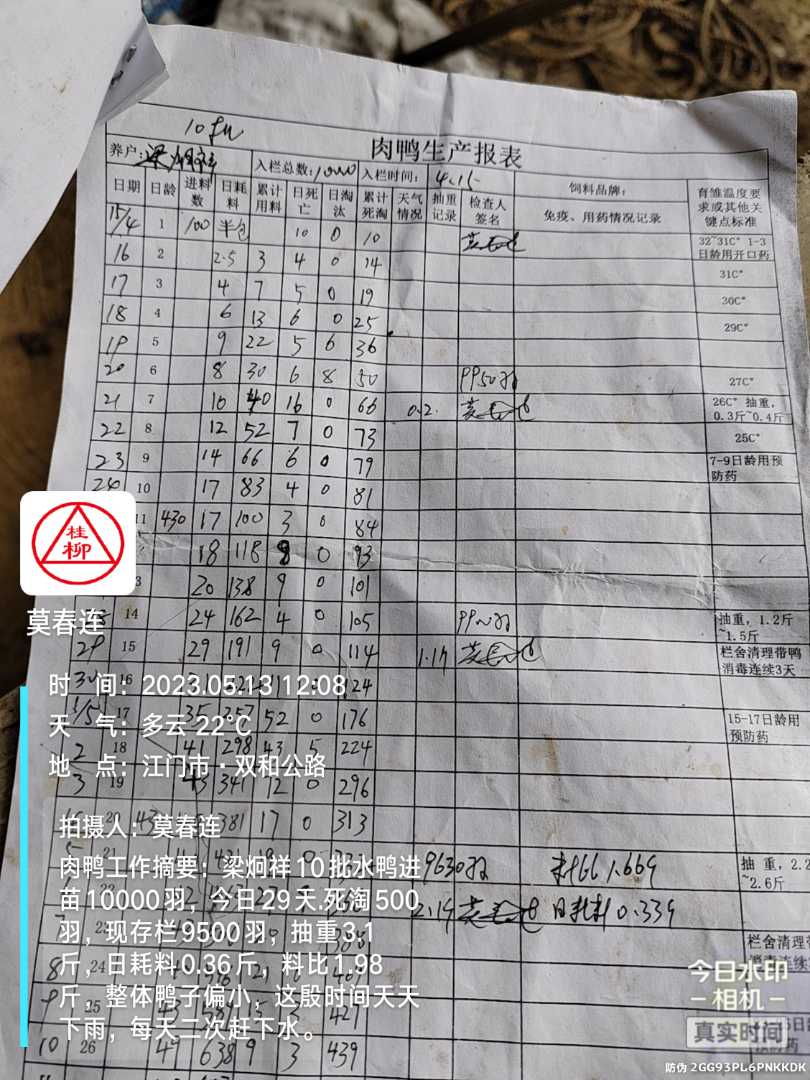 10批
肉鸭生产报表
养户: 梁炯祥 入栏总数: 10000 入栏时间: 4.15 饲料品牌:
日期 日龄 进料数 日耗料 累计用料 日死亡 日淘汰 累计死淘 天气情况 抽重记录 检查人签名 免疫、用药情况记录 育雏温度要求或其他关键点标准
15/4 1 100 半包 10 0 10 32~31C° 1-3日龄用开口药
16 2 2.5 3 4 0 14 31C°
17 3 4 7 5 0 19 30C°
18 4 6 13 6 0 25 29C°
19 5 9 22 5 6 36
20 6 8 30 6 8 50 27C°
21 7 10 40 16 0 66 0.2 26C° 抽重,0.3斤~0.4斤
22 8 12 52 7 0 73 25C°
23 9 14 66 6 0 79 7-9日龄用预防药
24 10 17 83 4 0 81
11 430 17 100 3 0 84
18 118 9 0 93
20 138 9 0 101
14 24 162 4 0 105 抽重,1.2斤~1.5斤
29 15 29 191 9 0 114 1.17 栏舍清理带鸭消毒连续3天
30 16 24
1/5 17 35 257 52 0 176 15-17日龄用预防药
2 18 41 298 43 5 224
3 19 43 341 12 0 296
20 381 17 0 313
21 9630羽 料比1.669 抽重,2.2~2.6斤
2.19 日耗料0.339
23 栏舍清理
8 24
9 25 427
10 26 49 638 9 3 439
桂柳
莫春连
时 间: 2023.05.13 12:08
天 气: 多云 22°C
地 点: 江门市·双和公路
拍摄人: 莫春连
肉鸭工作摘要: 梁炯祥10批水鸭进
苗10000羽，今日29天.死淘500
羽，现存栏9500羽，抽重3.1
斤，日耗料0.36斤，料比1.98
斤，整体鸭子偏小，这段时间天天
下雨，每天二次赶下水。
今日水印
相机
真实时间
防伪 2GG93PL6PNKKDK